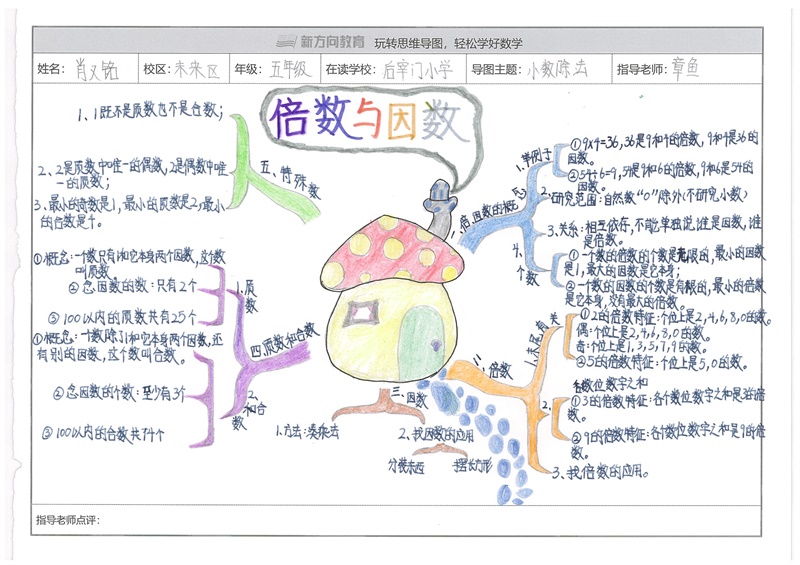 新方向教育 玩转思维导图，轻松学好数学
姓名： 校区：未来区 年级：五年级 在读学校：后宰门小学 导图主题：小数除法 指导老师：章鱼
倍数与因数
一、倍因数的概念
1.举例子
①9×4=36,36是9和4的倍数,9和4是36的
因数。
②54÷6=9,54是9和6的倍数,9和6是54的
因数。
2.研究范围:自然数"0"除外(不研究小数)
3.关系:相互依存,不能单独说谁是因数,谁
是倍数。
4.个数
①一个数的倍数的个数是无限的,最小的因数
是1,最大的因数是它本身;
②一个数的因数的个数是有限的,最小的倍数
是它本身,没有最大的倍数。
二、倍数
1.末尾有关
①2的倍数特征:个位上是2,4,6,8,0的数。
偶:个位上是2,4,6,8,0的数。
奇:个位上是1,3,5,7,9的数。
②5的倍数特征:个位上是5,0的数。
2.各数位数字之和
①3的倍数特征:各个数位数字之和是3的倍
数。
②9的倍数特征:各个数位数字之和是9的倍
数。
3、找倍数的应用。
三、因数
1.方法:乘除法
2、找因数的应用
分装东西
摆长方形
四.质数和合数
1.质数
①概念:一个数只有1和它本身两个因数,这个数
叫质数。
②总因数的数:只有2个
③100以内的质数共有25个
2、和合数
①概念:一个数除了1和它本身两个因数,还
有别的因数,这个数叫合数。
②总因数的个数:至少有3个
③100以内的合数共74个
五、特殊数
1、1既不是质数也不是合数;
2、2是质数中唯一的偶数,2是偶数中唯
一的质数;
3、最小的奇数是1,最小的质数是2,最小
的合数是4。
指导老师点评：